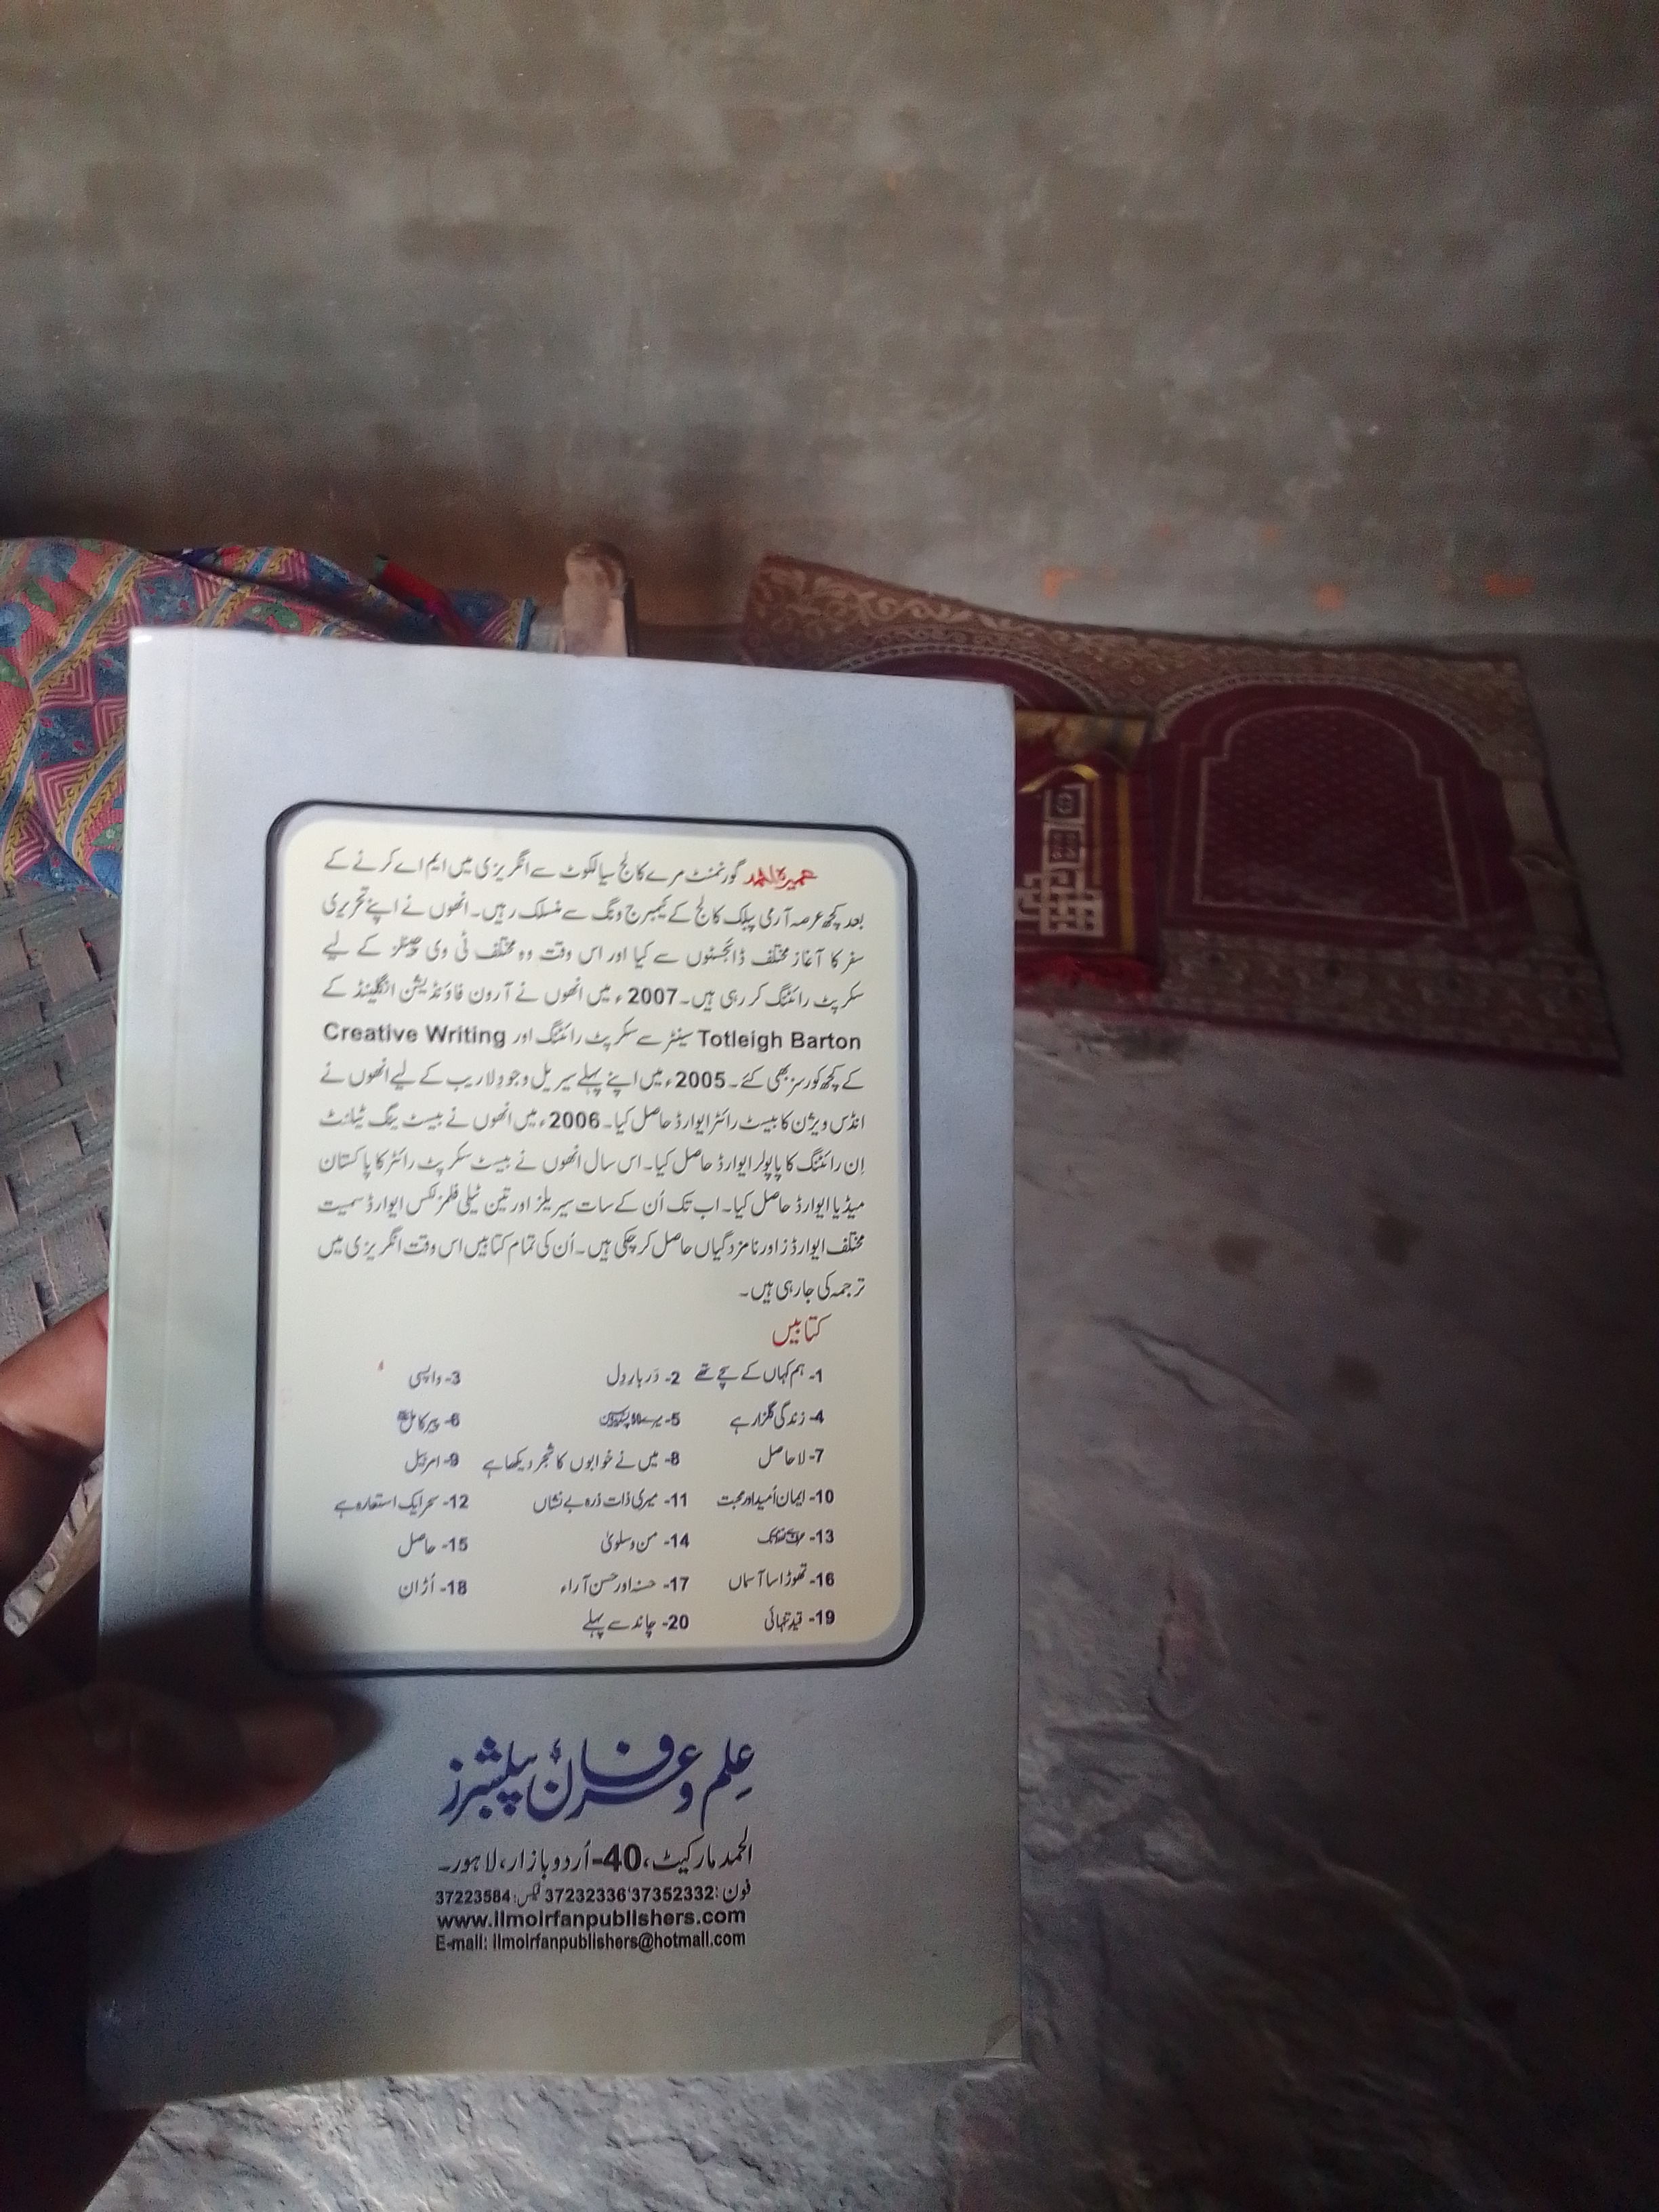 عمیرہ احمد گورنمنٹ مرے کالج سیالکوٹ سے انگریزی میں ایم اے کرنے کے
بعد کچھ عرصہ آرمی پبلک کالج کے کیمبرج ونگ سے منسلک رہیں۔ انھوں نے اپنے تحریری
سفر کا آغاز مختلف ڈائجسٹوں سے کیا اور اس وقت وہ مختلف ٹی وی چینلز کے لیے
سکرپٹ رائٹنگ کر رہی ہیں۔ 2007ء میں انھوں نے آرون فاؤنڈیشن انگلینڈ کے
Totleigh Barton سینٹر سے سکرپٹ رائٹنگ اور Creative Writing
کے کچھ کورسز بھی کئے۔ 2005ء میں اپنے پہلے سیریل وجودِ لاریب کے لیے انھوں نے
انڈس ویژن کا بیسٹ رائٹر ایوارڈ حاصل کیا۔ 2006ء میں انھوں نے بیسٹ ینگ ٹیلنٹ
اِن رائٹنگ کا پاپولر ایوارڈ حاصل کیا۔ اس سال انھوں نے بیسٹ سکرپٹ رائٹر کا پاکستان
میڈیا ایوارڈ حاصل کیا۔ اب تک اُن کے سات سیریلز اور تین ٹیلی فلمز لکس ایوارڈ سمیت
مختلف ایوارڈز اور نامزدگیاں حاصل کر چکی ہیں۔ اُن کی تمام کتابیں اس وقت انگریزی میں
ترجمہ کی جا رہی ہیں۔
کتابیں
1- ہم کہاں کے سچے تھے 2- دربارِ دِل 3- واپسی
4- زندگی گلزار ہے 5- 6- پیر کامل
7- لا حاصل 8- میں نے خوابوں کا شجر دیکھا ہے 9- امر بیل
10- ایمان اُمید اور محبت 11- میری ذات ذرہ بے نشاں 12- سحر ایک استعارہ ہے
13- 14- من و سلویٰ 15- حاصل
16- تھوڑا سا آسماں 17- حسنہ اور حسن آراء 18- اُڑان
19- قیدِ تنہائی 20- چاند سے پہلے
عِلم و عرفان پبلشرز
الحمد مارکیٹ، 40-اُردو بازار، لاہور۔
فون: 37352332'37232336 فیکس: 37223584
www.ilmoirfanpublishers.com
E-mail: ilmoirfanpublishers@hotmail.com